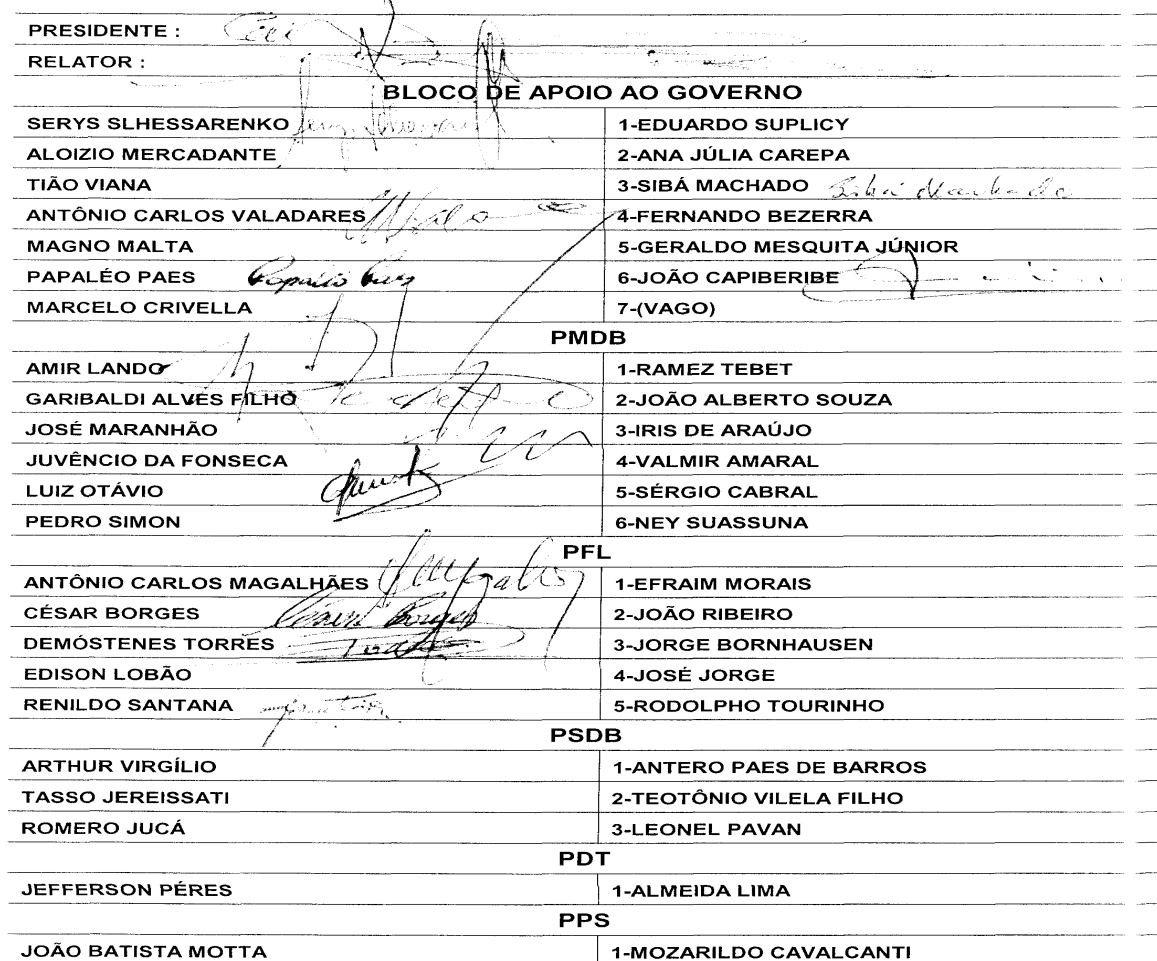 PRESIDENTE :
RELATOR :
BLOCO DE APOIO AO GOVERNO
SERYS SLHESSARENKO 1-EDUARDO SUPLICY
ALOIZIO MERCADANTE 2-ANA JÚLIA CAREPA
TIÃO VIANA 3-SIBÁ MACHADO Sibá Machado
ANTÔNIO CARLOS VALADARES 4-FERNANDO BEZERRA
MAGNO MALTA 5-GERALDO MESQUITA JÚNIOR
PAPALÉO PAES Papaléo Paes 6-JOÃO CAPIBERIBE
MARCELO CRIVELLA 7-(VAGO)
PMDB
AMIR LANDO 1-RAMEZ TEBET
GARIBALDI ALVES FILHO 2-JOÃO ALBERTO SOUZA
JOSÉ MARANHÃO 3-IRIS DE ARAÚJO
JUVÊNCIO DA FONSECA 4-VALMIR AMARAL
LUIZ OTÁVIO 5-SÉRGIO CABRAL
PEDRO SIMON 6-NEY SUASSUNA
PFL
ANTÔNIO CARLOS MAGALHÃES 1-EFRAIM MORAIS
CÉSAR BORGES César Borges 2-JOÃO RIBEIRO
DEMÓSTENES TORRES 3-JORGE BORNHAUSEN
EDISON LOBÃO 4-JOSÉ JORGE
RENILDO SANTANA 5-RODOLPHO TOURINHO
PSDB
ARTHUR VIRGÍLIO 1-ANTERO PAES DE BARROS
TASSO JEREISSATI 2-TEOTÔNIO VILELA FILHO
ROMERO JUCÁ 3-LEONEL PAVAN
PDT
JEFFERSON PÉRES 1-ALMEIDA LIMA
PPS
JOÃO BATISTA MOTTA 1-MOZARILDO CAVALCANTI